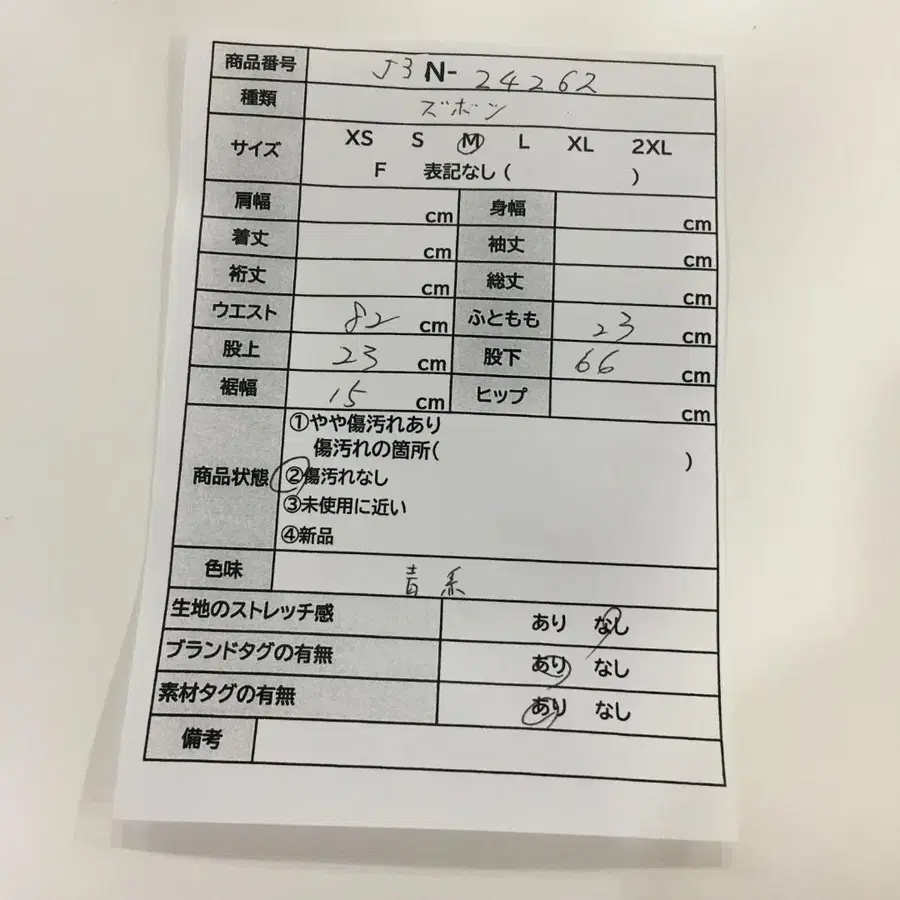 商品番号 J3 N- 24262
種類 ズボン
サイズ XS S M L XL 2XL
F 表記なし ( )
肩幅 cm 身幅 cm
着丈 cm 袖丈 cm
裄丈 cm 総丈 cm
ウエスト 82 cm ふともも 23 cm
股上 23 cm 股下 66 cm
裾幅 15 cm ヒップ cm
商品状態 ①やや傷汚れあり
傷汚れの箇所( )
②傷汚れなし
③未使用に近い
④新品
色味 青系
生地のストレッチ感 あり なし
ブランドタグの有無 あり なし
素材タグの有無 あり なし
備考